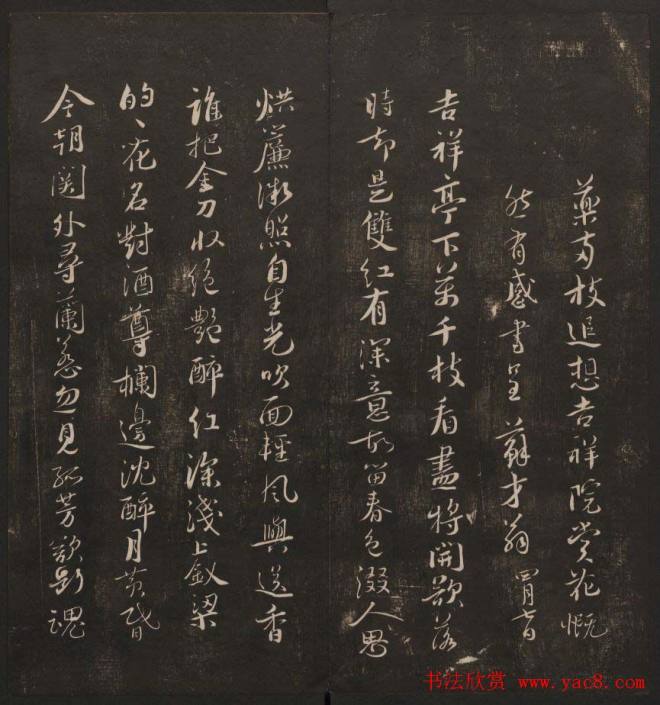 藥两枝追想吉祥院赏花慨
然有感書呈蘇才翁
吉祥亭下萬千枝看盡將開欲落
時却是雙紅有深意故留春色滯人思
烘簾微照自生光吹面輕風與送香
誰把金刀收絕艷醉红深淺上釵梁
的〻花名對酒尊欄邊沈醉月黄昏
今朝関外尋蘭蕙忽見孤芳欲斷魂
书法欣赏 www.yac8.com